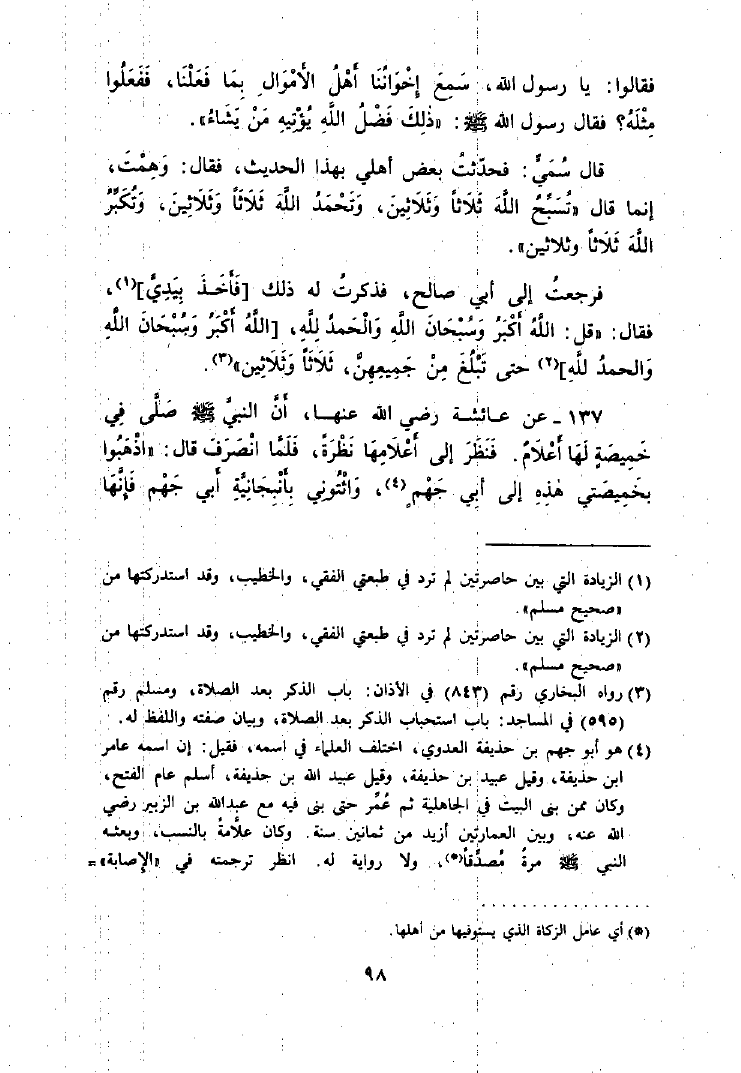 فقالوا: يا رسول الله، سَمِعَ إِخْوَانُنَا أَهْلُ الأَمْوَالِ بِمَا فَعَلْنَا، فَفَعَلُوا
مِثْلَهُ؟ فقال رسول الله ﷺ: «ذٰلِكَ فَضْلُ اللَّهِ يُؤْتِيهِ مَنْ يَشَاءُ».
قال سُمَيٌّ: فحدّثتُ بعض أهلي بهذا الحديث، فقال: وَهِمْتَ،
إنما قال «تُسَبِّحُ اللَّهَ ثَلَاثاً وَثَلَاثِينَ، وَتَحْمَدُ اللَّهَ ثَلَاثاً وَثَلَاثِينَ، وَتُكَبِّرُ
اللَّهَ ثَلَاثاً وثلاثين».
فرجعتُ إلى أبي صالح، فذكرتُ له ذلك [فَأَخَذَ بِيَدِيَّ](١)،
فقال: «قل: اللَّهُ أَكْبَرُ وَسُبْحَانَ اللَّهِ وَالْحَمدُ لِلَّهِ، [اللَّهُ أَكْبَرُ وَسُبْحَانَ اللَّهِ
وَالحمدُ للَّهِ](٢) حتى تَبْلُغَ مِنْ جَمِيعِهِنَّ، ثَلَاثاً وَثَلَاثِين»(٣).
١٣٧ - عن عائشة رضي الله عنها، أَنَّ النبيَّ ﷺ صَلَّى فِي
خَمِيصَةٍ لَهَا أَعْلَامٌ. فَنَظَرَ إلى أَعْلَامِهَا نَظْرَةً، فَلَمَّا انْصَرَفَ قال: «اذْهَبُوا
بخَمِيصَتي هٰذِهِ إلى أَبِي جَهْمٍ(٤)، وَائْتُونِي بِأَنْبِجَانِيَّةِ أَبي جَهْم فَإِنَّهَا
(١) الزيادة التي بين حاصرتين لم ترد في طبعتي الفقي، والخطيب، وقد استدركتها من
«صحيح مسلم».
(٢) الزيادة التي بين حاصرتين لم ترد في طبعتي الفقي، والخطيب، وقد استدركتها من
«صحيح مسلم».
(٣) رواه البخاري رقم (٨٤٣) في الأذان: باب الذكر بعد الصلاة، ومسلم رقم
(٥٩٥) في المساجد: باب استحباب الذكر بعد الصلاة، وبيان صفته واللفظ له.
(٤) هو أبو جهم بن حذيفة العدوي، اختلف العلماء في اسمه، فقيل: إن اسمه عامر
ابن حذيفة، وقيل عبيد بن حذيفة، وقيل عبيد الله بن حذيفة، أسلم عام الفتح،
وكان ممن بنى البيت في الجاهلية ثم عُمِّر حتى بنى فيه مع عبدالله بن الزبير رضي
الله عنه، وبين العمارتين أزيد من ثمانين سنة. وكان علَّامةً بالنسب، وبعثه
النبي ﷺ مرةً مُصدِّقاً(*)، ولا رواية له. انظر ترجمته في «الإصابة» =
(*) أي عامل الزكاة الذي يستوفيها من أهلها.
٩٨